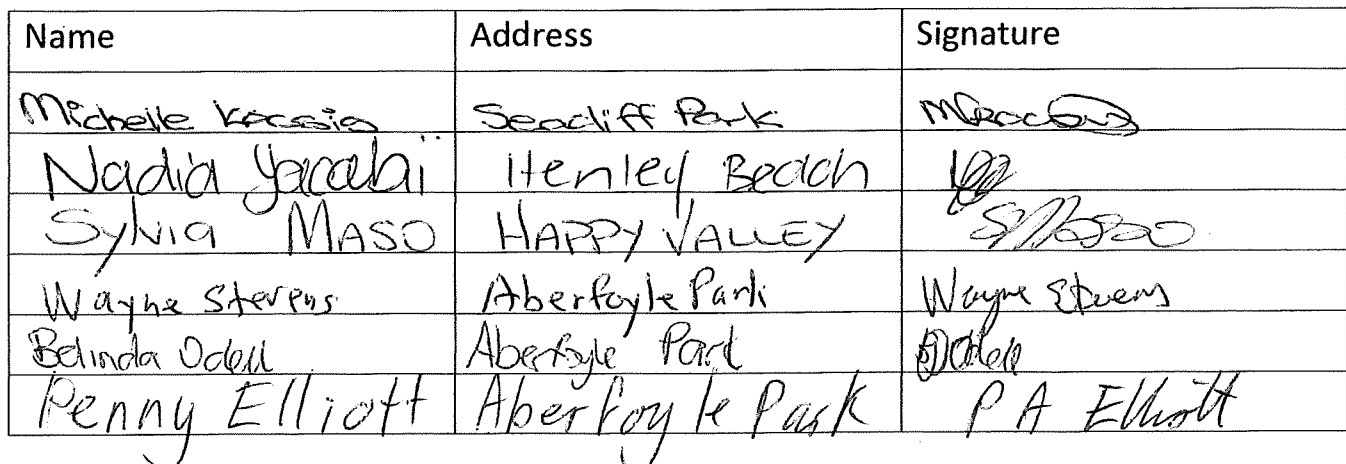 Name Address Signature
Michelle Seacliff Park
Nadia Yacoubi Henley Beach
Sylvia MASO HAPPY VALLEY
Wayne Stevens Aberfoyle Park Wayne Stevens
Belinda Odell Aberfoyle Park Odell
Penny Elliott Aberfoyle Park P A Elliott